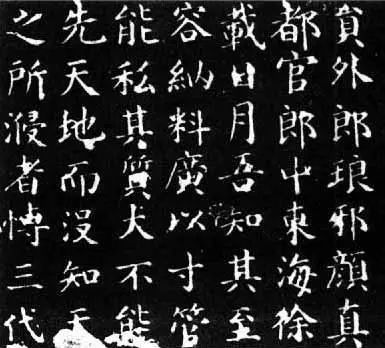 貟外郎琅邪顔真
都官郎中東海徐
載日月吾知其至
容納料廣以寸管
能私其質犬不能
先天地而没知天
之所浸者愽三代